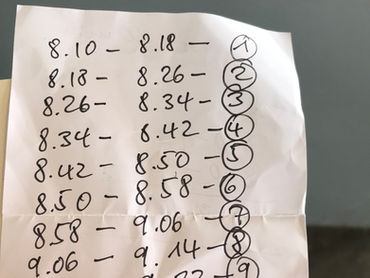 8.10 - 8.18 - 1
8.18 - 8.26 - 2
8.26 - 8.34 - 3
8.34 - 8.42 - 4
8.42 - 8.50 - 5
8.50 - 8.58 - 6
858 - 9.06 - 7
9.06 - 9.14 - 8
9